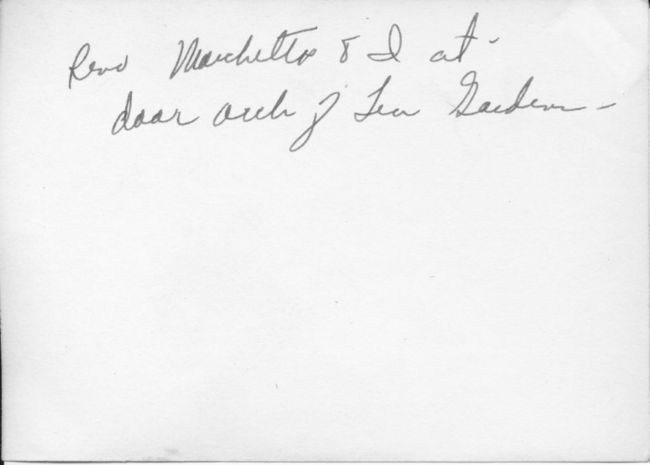 Reno Marchetto & I at
door arch of Tea Garden -